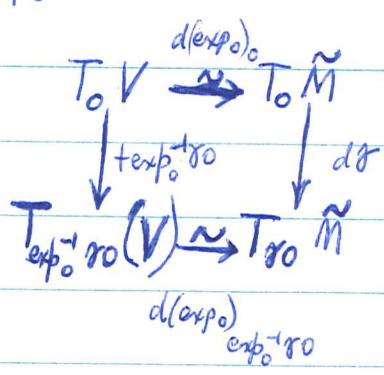 d(exp₀)₀
T₀V ⥲ T₀M̃
+exp₀⁻¹γ0 dγ
T_{exp₀⁻¹γ0}(V) ⥲ T_{γ0}M̃
d(exp₀)_{exp₀⁻¹γ0}